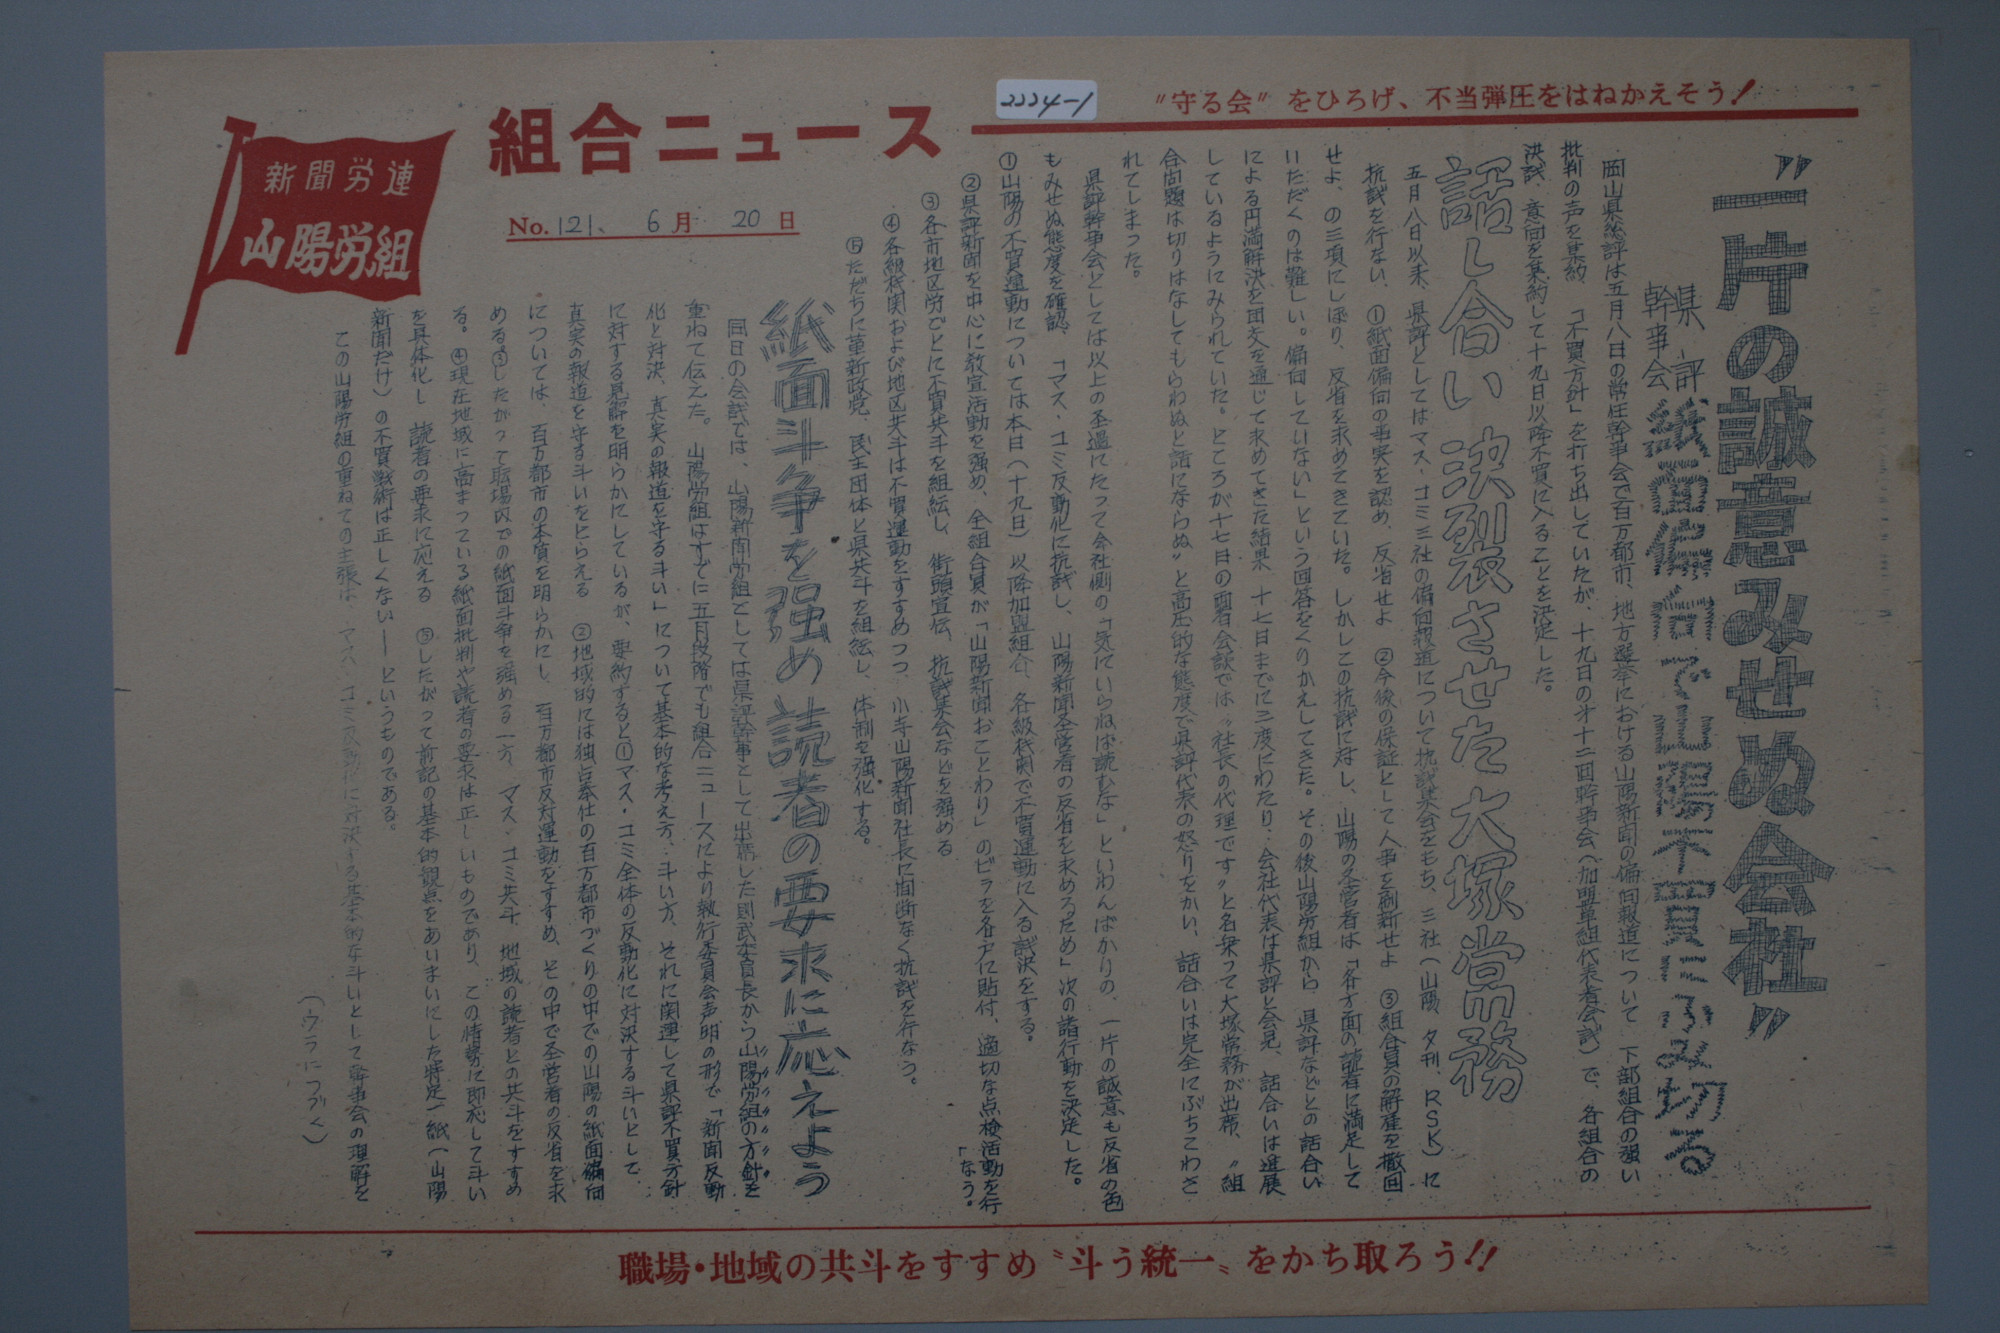 2224-1
“守る会”をひろげ、不当弾圧をはねかえそう!
組合ニュース
新聞労連
山陽労組
No. 121、 6月 20日
“一片の誠意みせぬ会社”
県評幹事会 紙面偏向で山陽不買にふみ切る
岡山県総評は五月八日の常任幹事会で百万都市、地方選挙における山陽新聞の偏向報道について、下部組合の強い
批判の声を集約、「不買方針」を打ち出していたが、十九日の才十二回幹事会(加盟単組代表者会議)で、各組合の
決議、意向を集約して十九日以降不買に入ることを決定した。
話し合い決裂させた大塚常務
五月八日以来、県評としてはマス・コミ三社の偏向報道について抗議集会をもち、三社(山陽、夕刊、RSK)に
抗議を行ない、①紙面偏向の事実を認め、反省せよ ②今後の保証として人事を刷新せよ ③組合員の解雇を撤回
せよ、の三項にしぼり、反省を求めてきていた。しかしこの抗議に対し、山陽の経営者は「各方面の読者に満足して
いただくのは難しい。偏向していない」という回答をくりかえしてきた。その後山陽労組から、県評などとの話合い
による円満解決を団交を通じて求めてきた結果、十七日までに三度にわたり、会社代表は県評と会見、話合いは進展
しているようにみられていた。ところが十七日の会談では“社長の代理です”と名乗って大塚常務が出席、“組
合問題は切りはなしてもらわぬと話にならぬ”と高圧的な態度で県評代表の怒りをかい、話合いは完全にぶちこわさ
れてしまった。
県評幹事会としては以上の経過にたって会社側の「気にいらねば読むな」といわんばかりの、一片の誠意も反省の色
もみせぬ態度を確認、「マス・コミ反動化に抗議し、山陽新聞経営者の反省を求めるため」次の諸行動を決定した。
①山陽の不買運動については本日(十九日)以降加盟組合、各級機関で不買運動に入る決議をする。
②県評新聞を中心に教宣活動を強め、全組合員が「山陽新聞おことわり」のビラを各戸に貼付、適切な点検活動を行
なう。
③各市地区労ごとに不買共斗を組織し、街頭宣伝、抗議集会などを強める
④各級機関および地区共斗は不買運動をすすめつつ、小寺山陽新聞社長に間断なく抗議を行なう。
⑤ただちに革新政党、民主団体と県共斗を組織し、体制を強化する。
紙面斗争を強め読者の要求に応えよう
同日の会議では、山陽新聞労組としては県評幹事として出席した則武委員長から山陽労組の方針を
重ねて伝えた。山陽労組はすでに五月段階でも組合ニュースにより執行委員会声明の形で「新聞反動
化と対決、真実の報道を守る斗い」について基本的な考え方、斗い方、それに関連して県評不買方針
に対する見解を明らかにしているが、要約すると①マス・コミ全体の反動化に対決する斗いとして、
真実の報道を守る斗いをとらえる ②地域的には独占奉仕の百万都市づくりの中での山陽の紙面偏向
については、百万都市の本質を明らかにし、百万都市反対運動をすすめ、その中で経営者の反省を求
める。③したがって職場内での紙面斗争を強める一方、マス・コミ共斗、地域の読者との共斗をすすめ
る。④現在地域に高まっている紙面批判や読者の要求は正しいものであり、この情勢に即応して斗い
を具体化し、読者の要求に応える ⑤したがって前記の基本的観点をあいまいにした特定一紙(山陽
新聞だけ)の不買戦術は正しくない——というものである。
この山陽労組の重ねての主張は、マス・コミ反動化に対決する基本的な斗いとして幹事会の理解を
(ウラにつづく)
職場・地域の共斗をすすめ“斗う統一”をかち取ろう!!